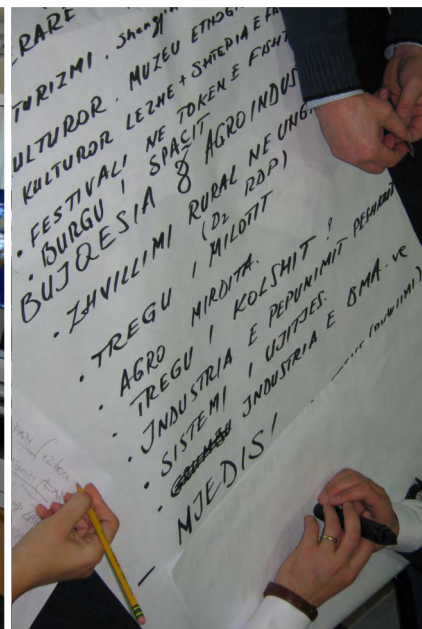 RARE
TURIZMI. Shengjin
ULTUROR. MUZEU ETNOGR
KULTUROR LEZHE + SHTEPIA E
• FESTIVALI NE TOKEN E FISHT
• BURGU I SPAÇIT
BUJQESIA & AGROINDUS
• ZHVILLIMI RURAL NE UNG.
(D2 RDP)
• TREGU I MILOTIT
• AGRO MIRDITA.
• TREGU I KOLSHIT ?
• INDUSTRIA E PEPUNIMIT PESHKUT
• SISTEMI I UJITJES.
• INDUSTRIA E BMA-ve
- MJEDISI